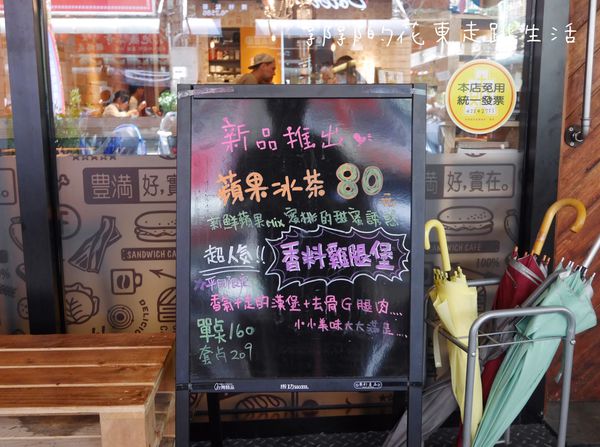 郭陽陽的花東走跳生活
本店免用
統一發票
新品推出
蘋果冰茶 80
新鮮蘋果mix蜜桃的甜蜜誘惑
超人氣!!
香料雞腿堡
香氣十足的漢堡+去骨G腿肉....
小小美味大大滿足....
單點160
套点209
豐滿 好,實
好,實在。
SANDWICH CAFE
SANDWICH CAFE
100%
成功